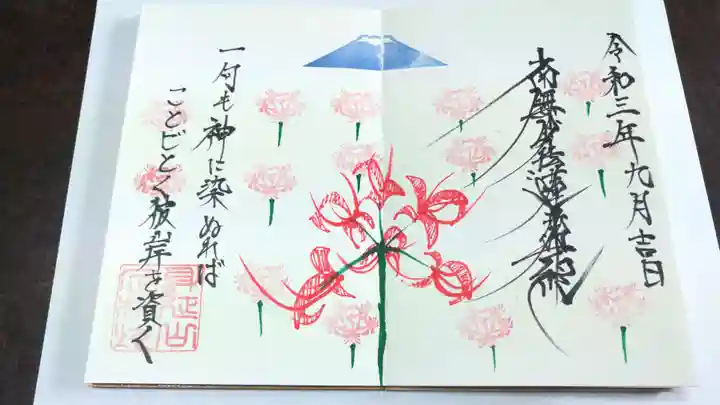 令和三年九月吉日
南無妙法蓮華経
一句も神に染ぬれば
ことごとく彼岸を資く